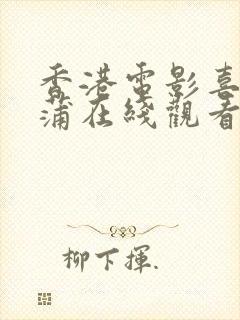 香港電影喜
蒲在綫觀看
柳下揮.